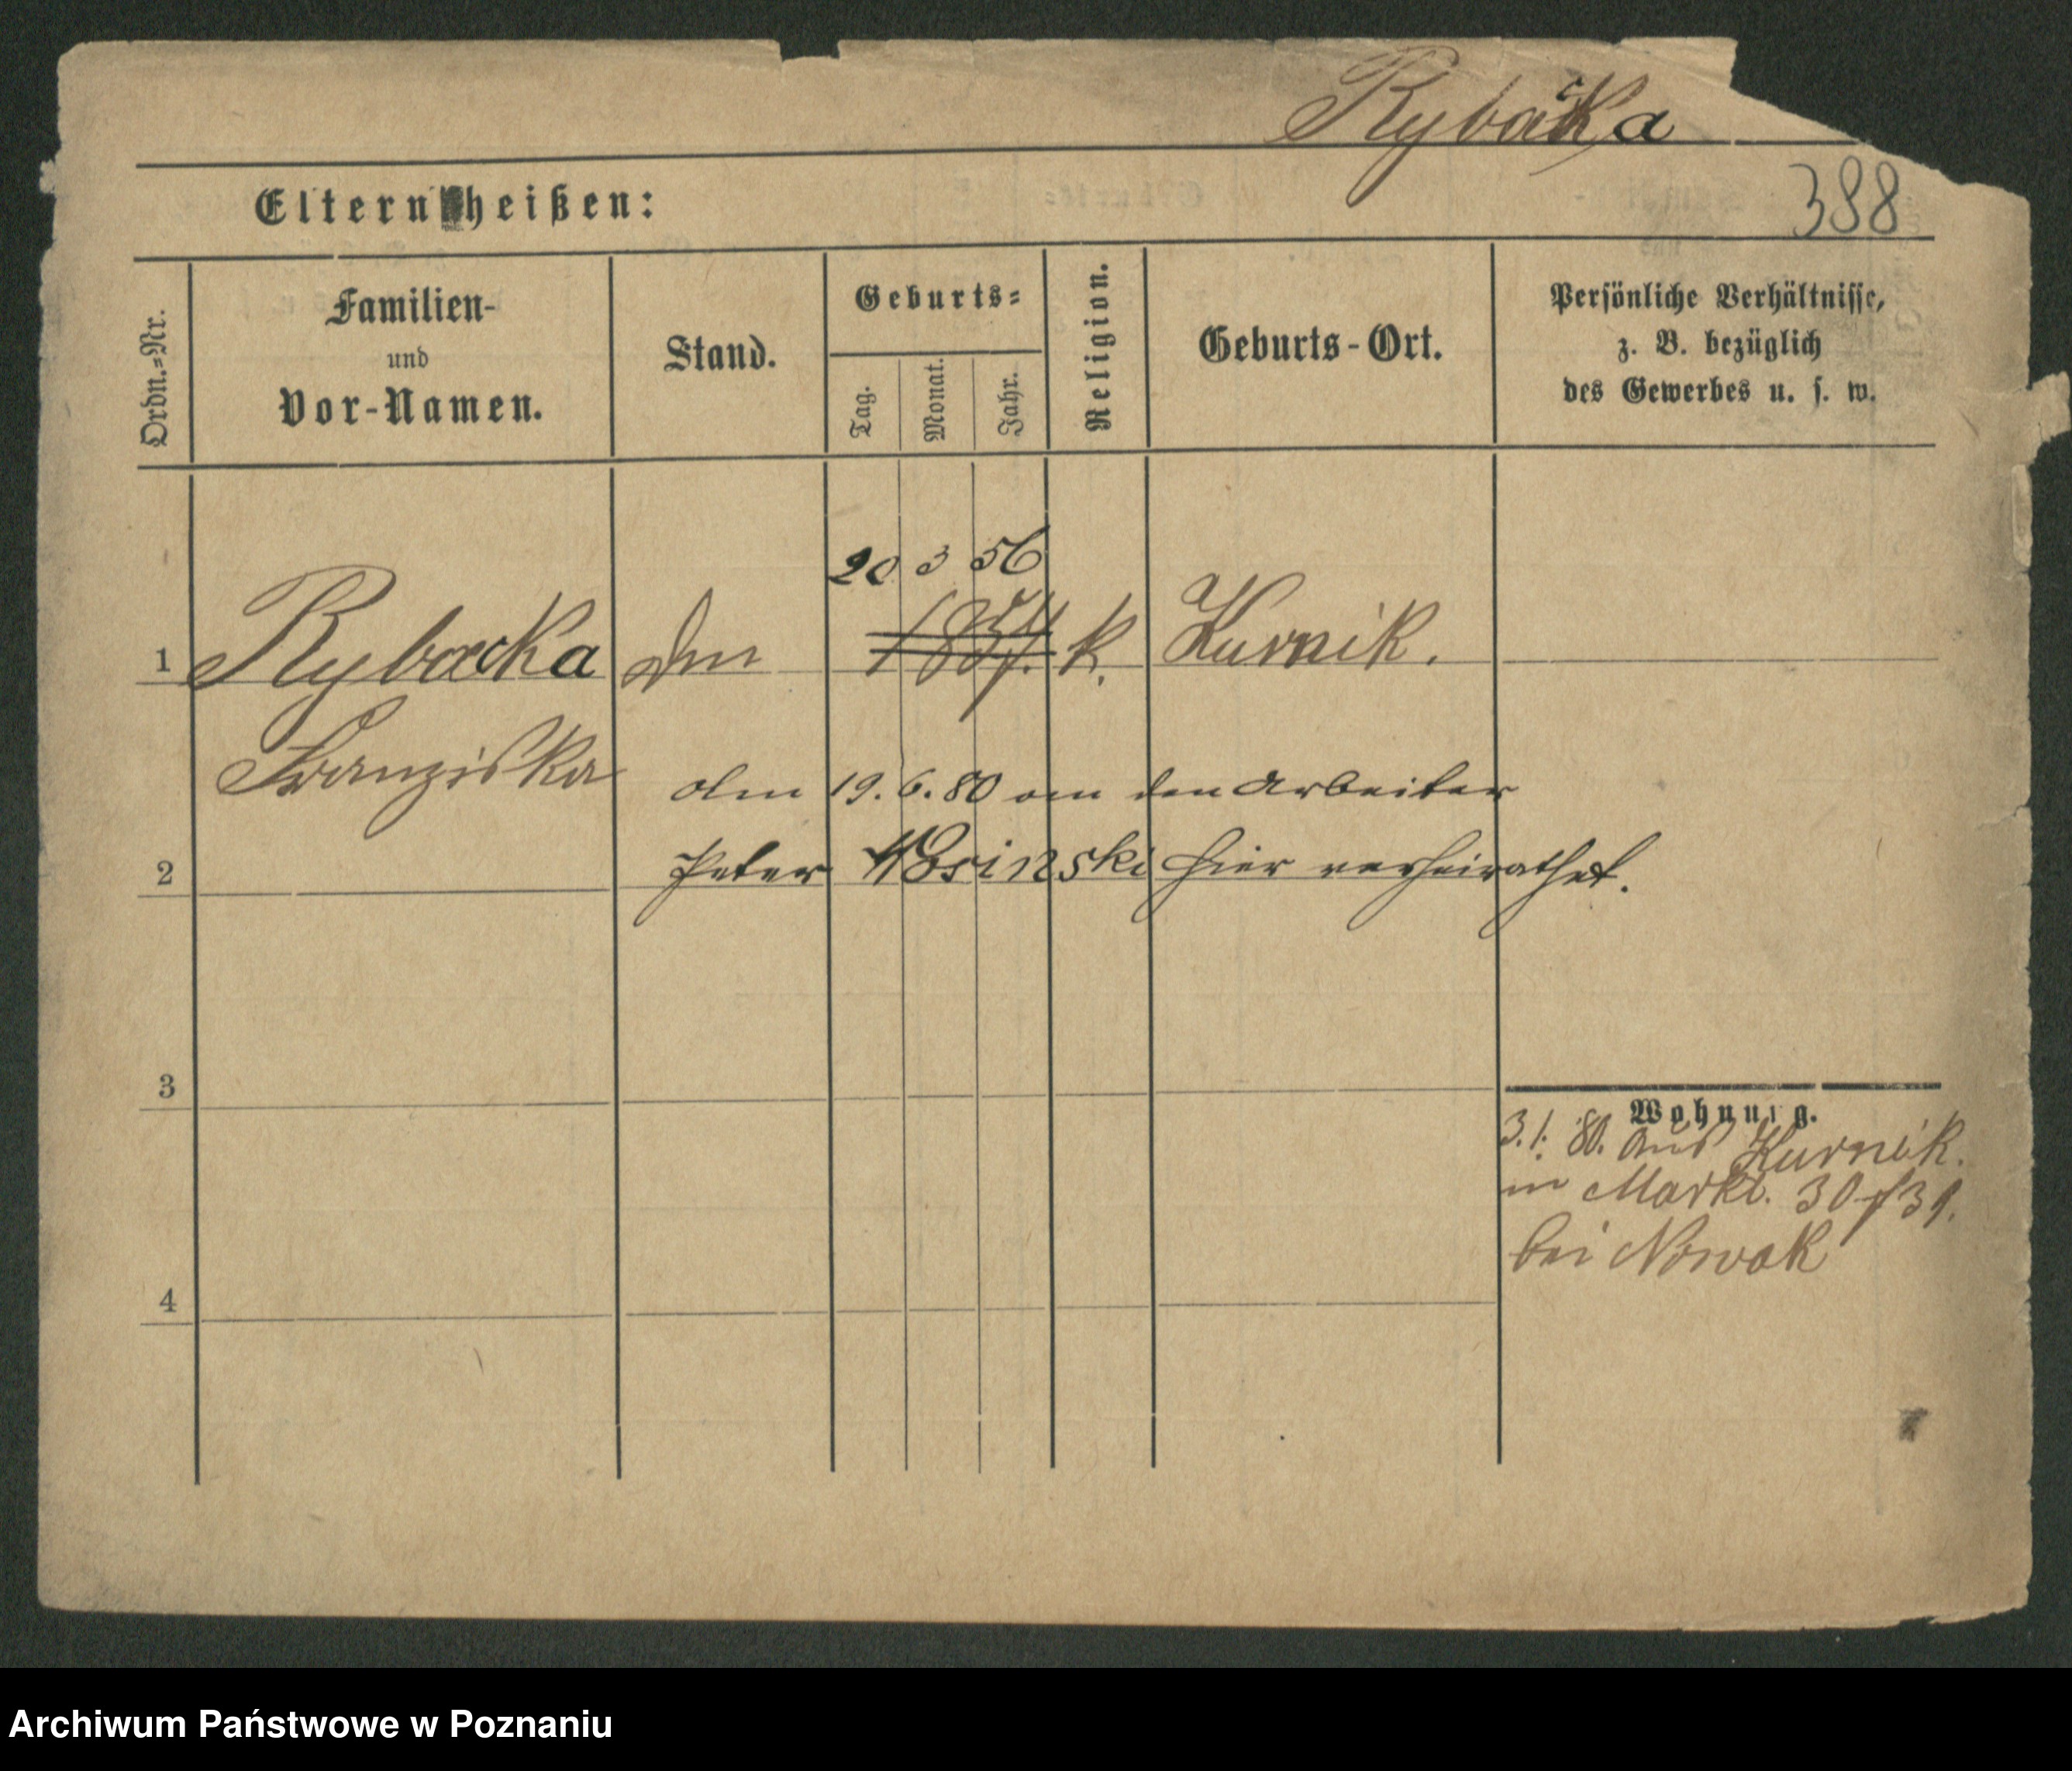 Rybacka
388
Eltern heißen:
Ordn.=Nr.
Familien-
und
Vor-Namen.
Stand.
Geburts=
Tag.
Monat.
Jahr.
Religion.
Geburts-Ort.
Persönliche Verhältnisse,
z. B. bezüglich
des Gewerbes u. s. w.
20 3 56
1 Rybacka k. Kurnik.
Franziska
Am 19.6.80 an den Arbeiter
2 Peter hier verheirathet.
3
Wohnung.
3.1.80. aus Kurnik.
in Markt. 30/31.
bei Nowak
4
Archiwum Państwowe w Poznaniu